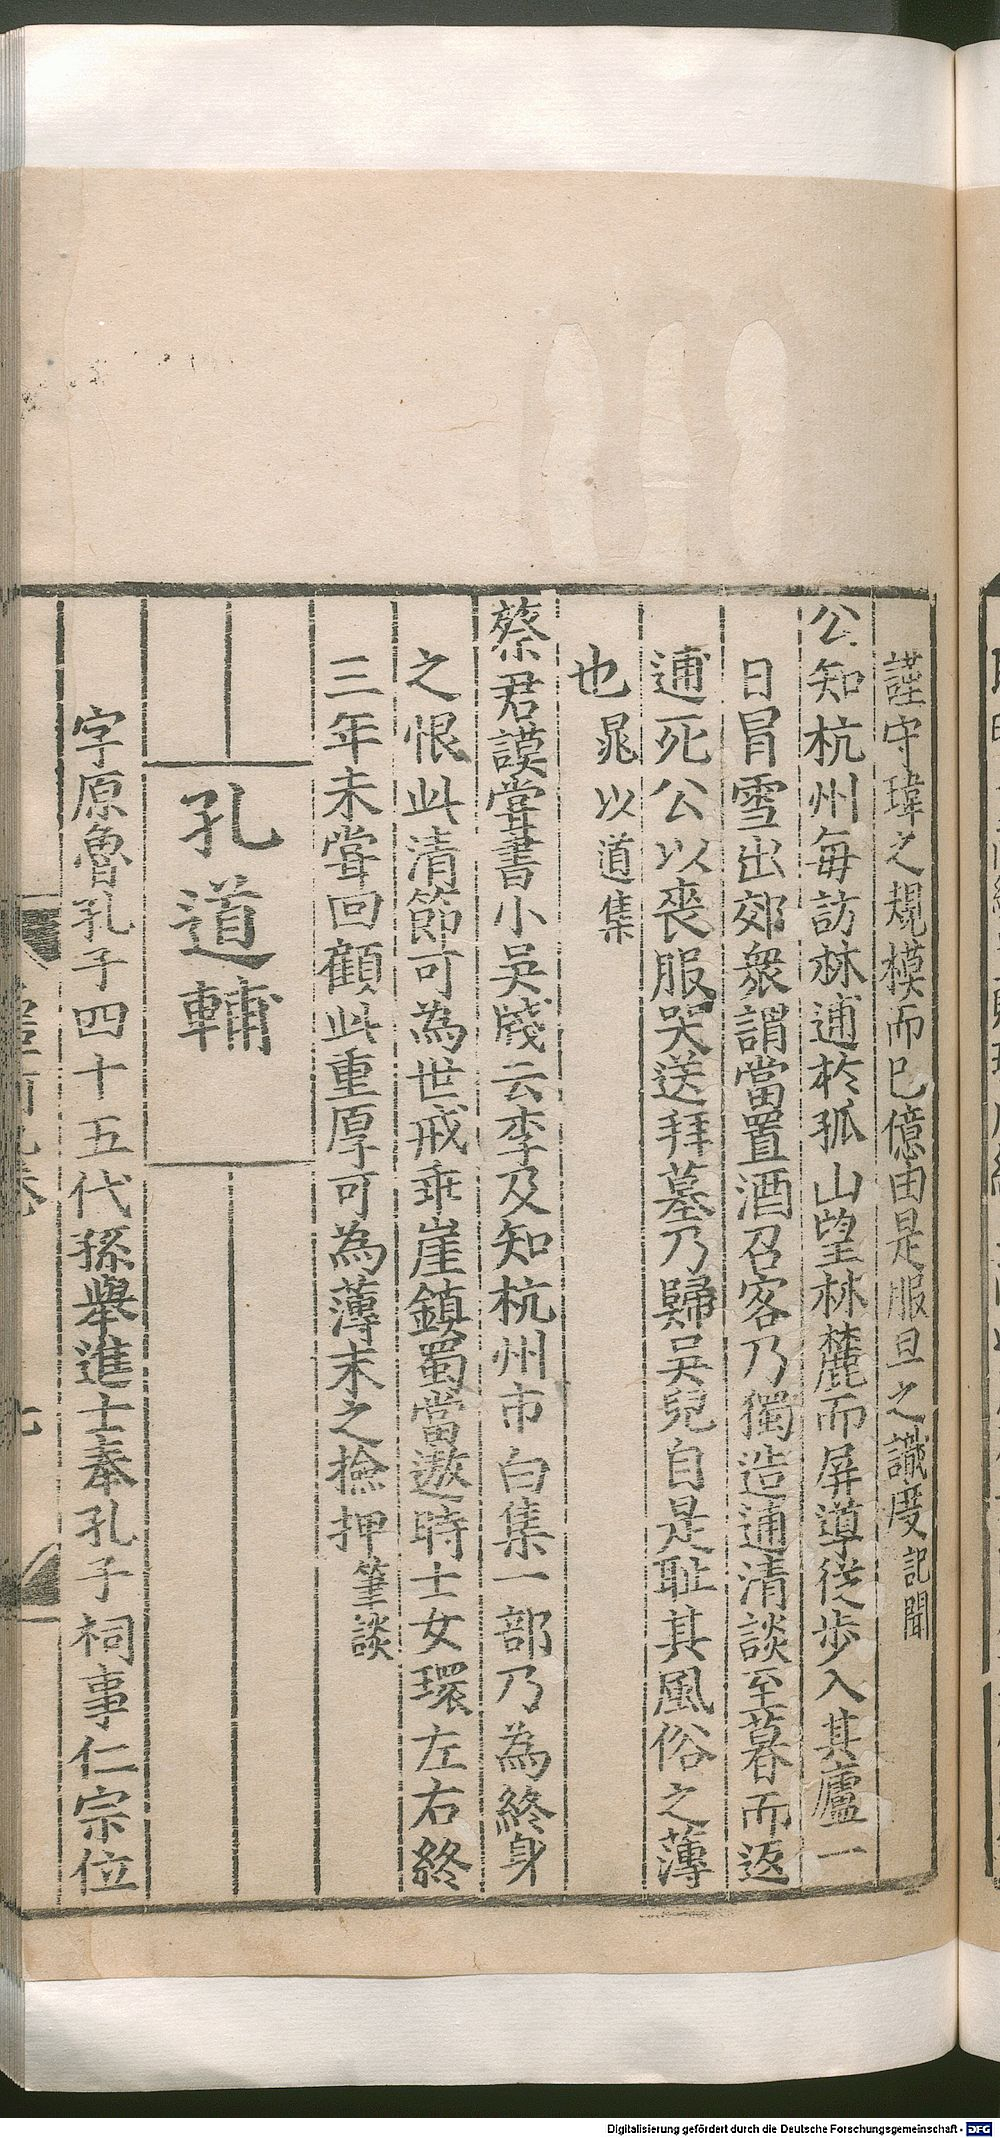 謹守瑋之規模而已億由是服旦之識度記聞
公知杭州每訪林逋於孤山望林麓而屏導從步入其廬一
日冒雪出郊衆謂當置酒召客乃獨造逋清談至暮而返
逋死公以喪服哭送拜墓乃歸吳兒自是耻其風俗之薄
也晁以道集
蔡君謨嘗書小吳牋云李及知杭州市白集一部乃為終身
之恨此清節可為世戒乖崖鎮蜀當遨時士女環左右終
三年未嘗回顧此重厚可為薄末之撿押筆談
孔道輔
字原魯孔子四十五代孫舉進士奉孔子祠事仁宗位
Digitalisierung gefördert durch die Deutsche Forschungsgemeinschaft - DFG